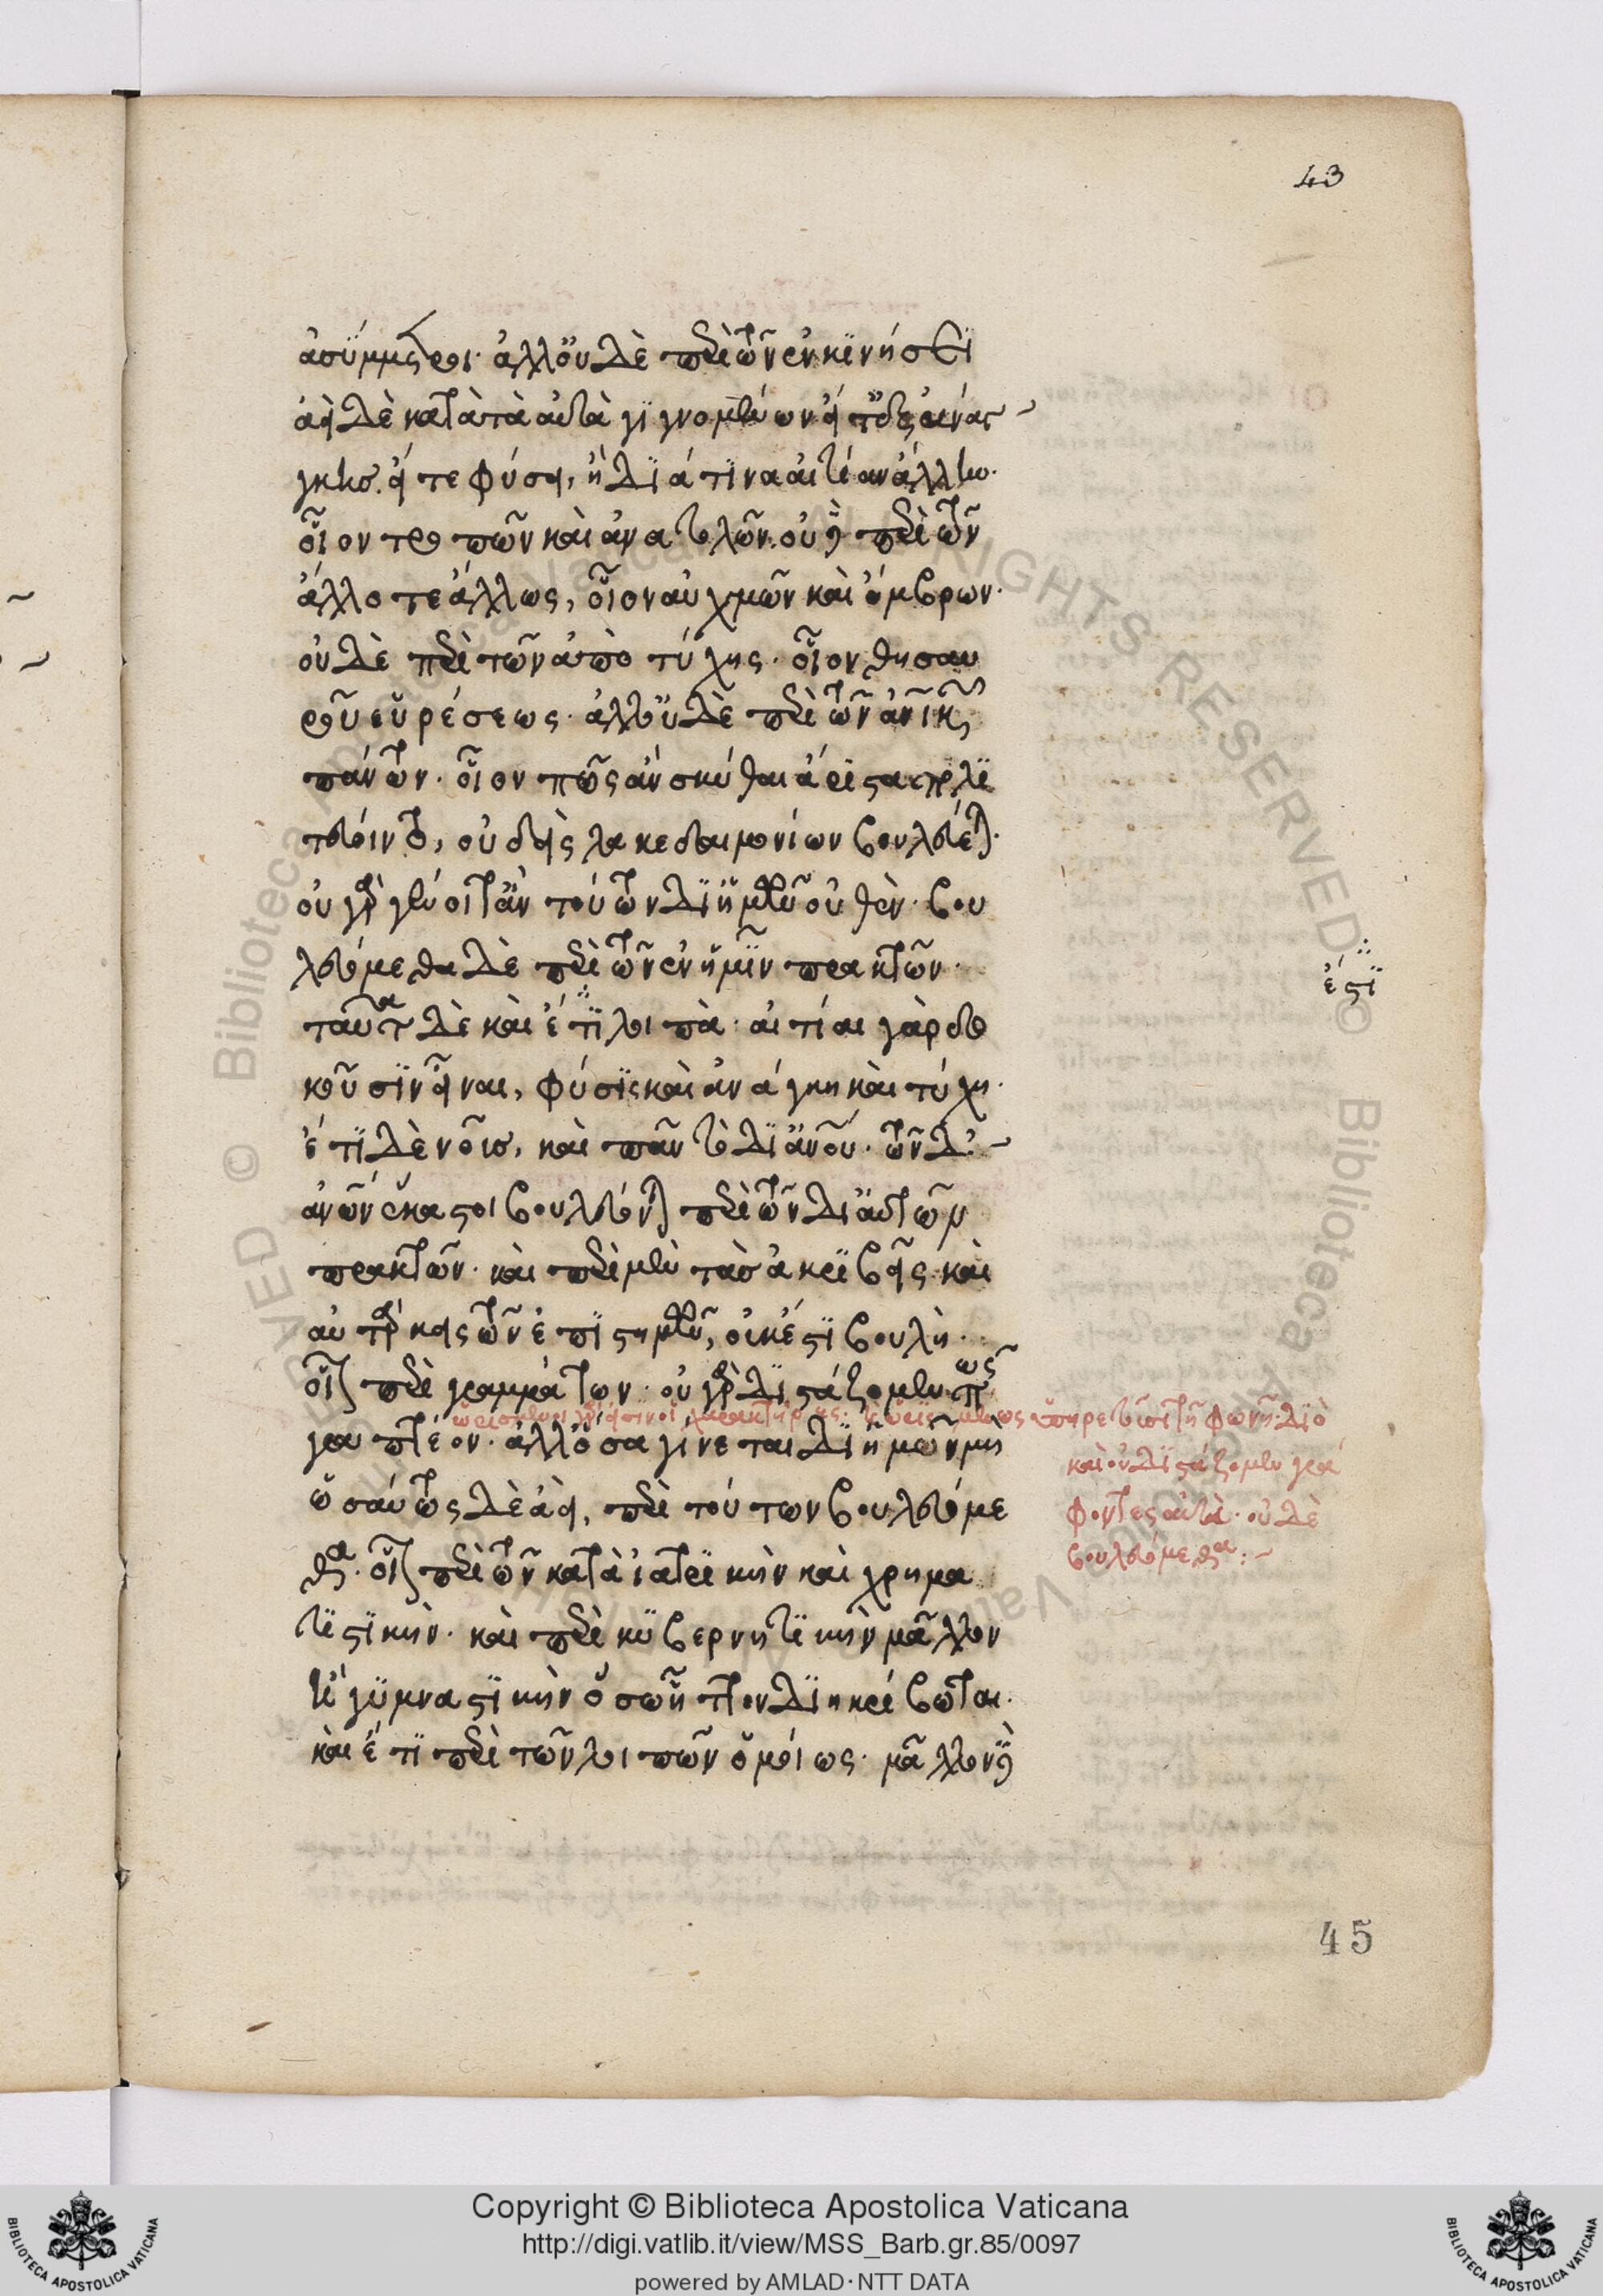 43
ἀσύμμετροι· ἀλλ' οὐδὲ περὶ τῶν ἐν κινήσει
ἀεὶ δὲ κατὰ τὰ αὐτὰ γιγνομένων εἴτ' ἐξ ἀνάγ
κης· εἴτε φύσει, ἢ διά τινα αἰτίαν ἄλλην·
οἷον τροπῶν καὶ ἀνατολῶν· οὐδὲ περὶ τῶν
ἄλλοτε ἄλλως, οἷον αὐχμῶν καὶ ὄμβρων·
οὐδὲ περὶ τῶν ἀπὸ τύχης· οἷον θησαυ
ροῦ εὑρέσεως· ἀλλ' οὐδὲ περὶ τῶν ἀνθρωπικῶν
πάντων· οἷον πῶς ἂν σκύθαι ἄριστα πολι
τεύοιντο, οὐδεὶς λακεδαιμονίων βουλεύεται·
οὐ γὰρ γένοιτ' ἂν τούτων δι' ἡμῶν οὐθέν· βου
λευόμεθα δὲ περὶ τῶν ἐν ἡμῖν πρακτῶν·
ταῦτα δὲ καὶ ἔτι λοιπὰ· αἰτίαι γὰρ δο
κοῦσιν εἶναι, φύσις καὶ ἀνάγκη καὶ τύχη·
ἔτι δὲ νοῦς, καὶ πᾶν τὸ δι' ἀνθρώπου· τῶν δ'
ἀνθρώπων ἕκαστοι βουλεύονται περὶ τῶν δι' αὑτῶν
πρακτῶν· καὶ περὶ μὲν τὰς ἀκριβεῖς καὶ
αὐτάρκεις τῶν ἐπιστημῶν, οὐκ ἔστι βουλή·
οἷον περὶ γραμμάτων· οὐ γὰρ διστάζομεν πῶς
γραπτέον· ἀλλ' ὅσα γίνεται δι' ἡμῶν μὴ
ὡσαύτως δὲ ἀεὶ, περὶ τούτων βουλευόμε
θα· οἷον περὶ τῶν κατὰ ἰατρικὴν καὶ χρημα
τιστικήν· καὶ περὶ κυβερνητικὴν μᾶλλον
ἢ γυμναστικὴν ὅσῳ ἧττον διηκρίβωται·
καὶ ἔτι περὶ τῶν λοιπῶν ὁμοίως· μᾶλλον δὲ
ἔστι
ὡρισμένοι γάρ εἰσιν οἱ χαρακτῆρες· ὑπηρετοῦσι τῇ φωνῇ· διὸ
καὶ οὐ διστάζομεν γρά
φοντες αὐτὰ· οὐδὲ
βουλευόμεθα:~
45
Copyright © Biblioteca Apostolica Vaticana
http://digi.vatlib.it/view/MSS_Barb.gr.85/0097
powered by AMLAD·NTT DATA
BIBLIOTECA APOSTOLICA VATICANA
BIBLIOTECA APOSTOLICA VATICANA